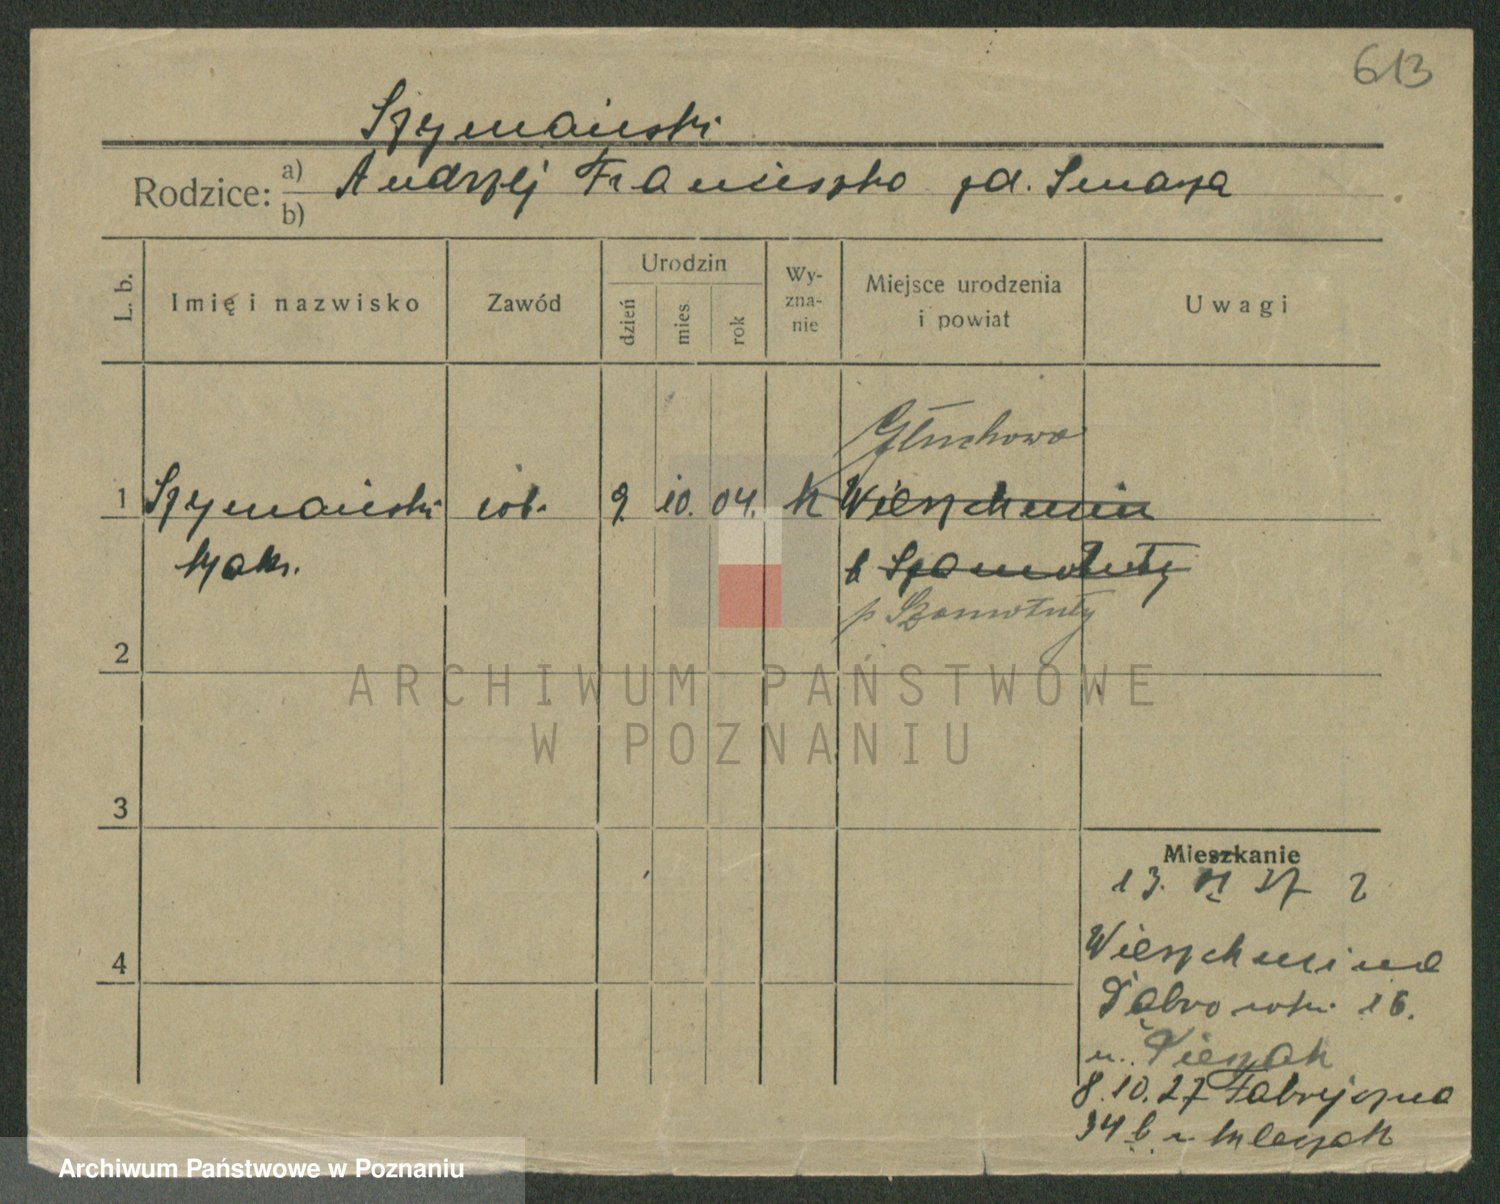 613
Szymański
Rodzice: a) Andrzej Franciszka zd. Smaza
b)
L. b. Imię i nazwisko Zawód Urodzin dzień mies. rok Wy-zna-nie Miejsce urodzenia i powiat Uwagi
Głuchowo
1 Szymański rob. 9. 10. 04. k
Maks. p Szamotuły
p Szamotuły
2
ARCHIWUM PAŃSTWOWE
W POZNANIU
3
Mieszkanie
13. 27 z
4
Dąbrowski 16.
8.10.27 Fabryczna
34 b
Archiwum Państwowe w Poznaniu